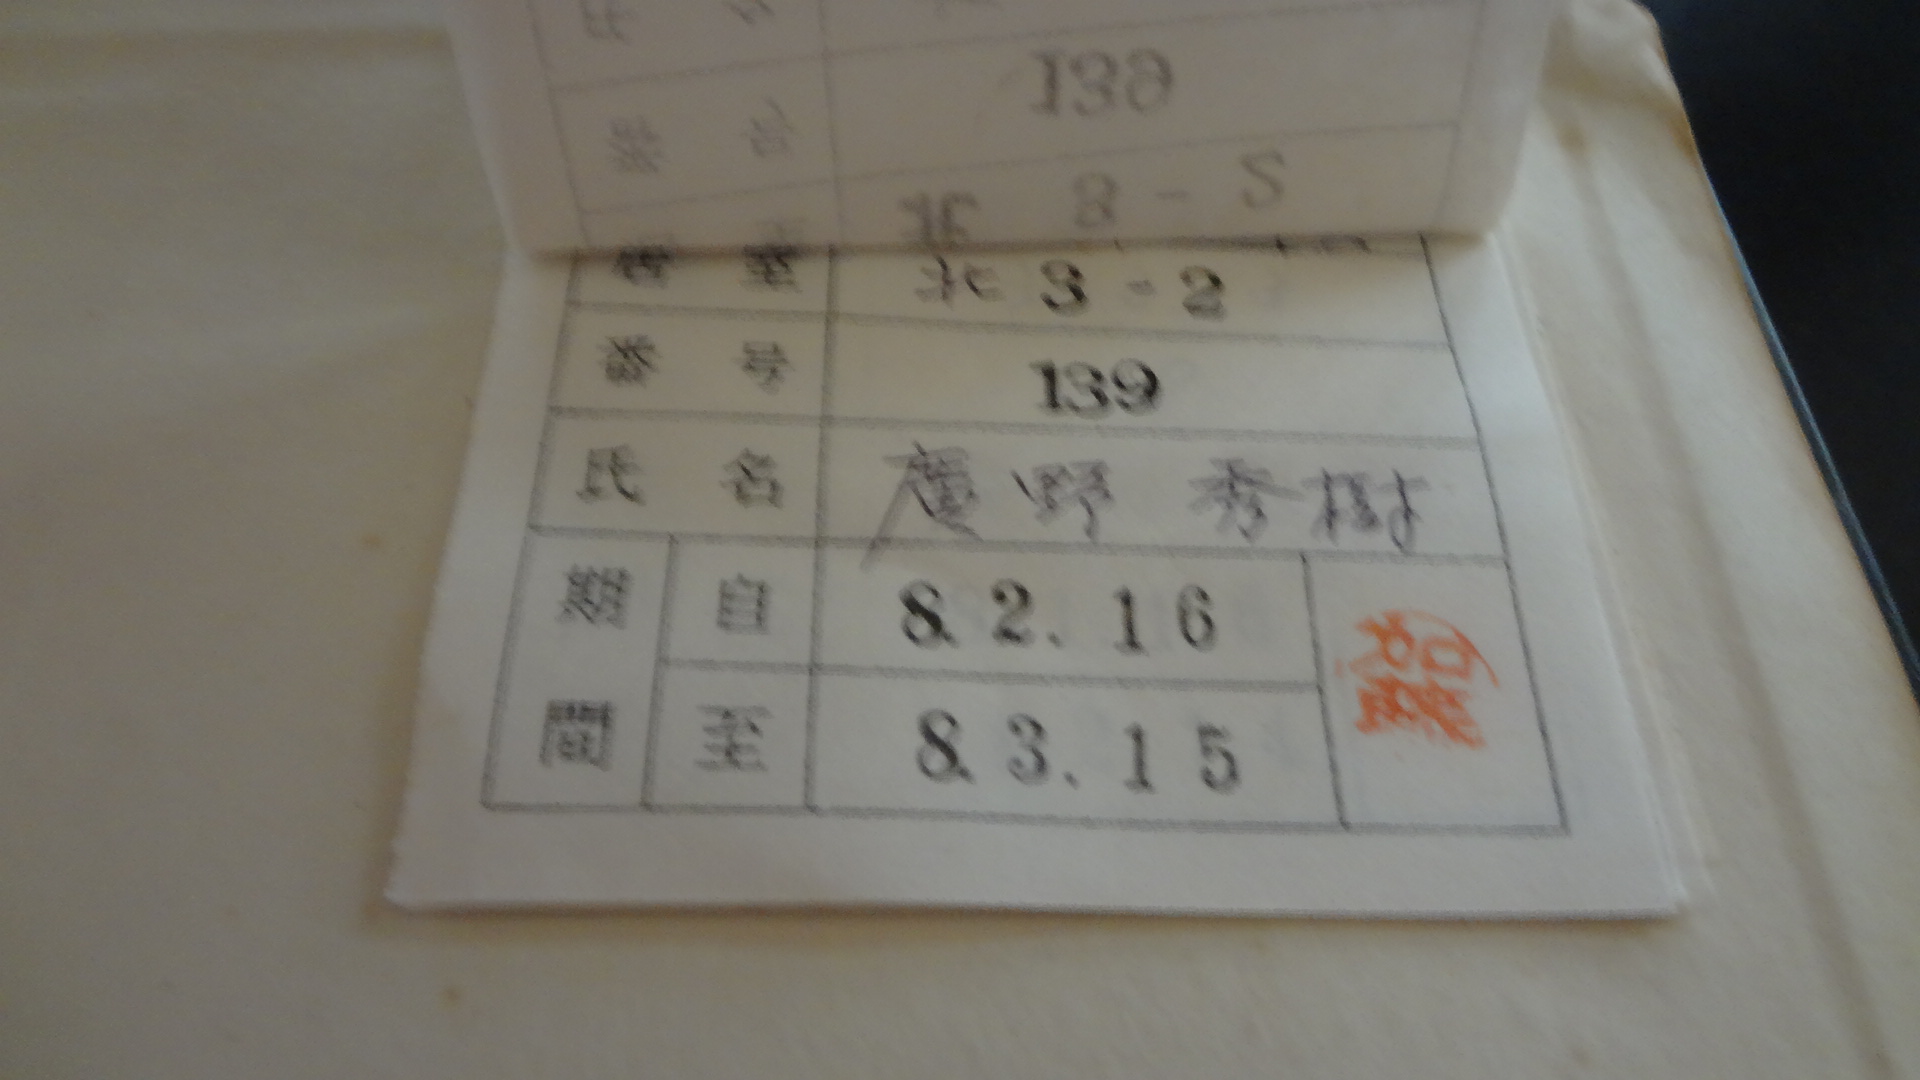 139
北 3 - 2
居 室 北 3 - 2
番 号 139
氏 名 廣野 秀樹
期間 自 8. 2. 16
至 8. 3. 15